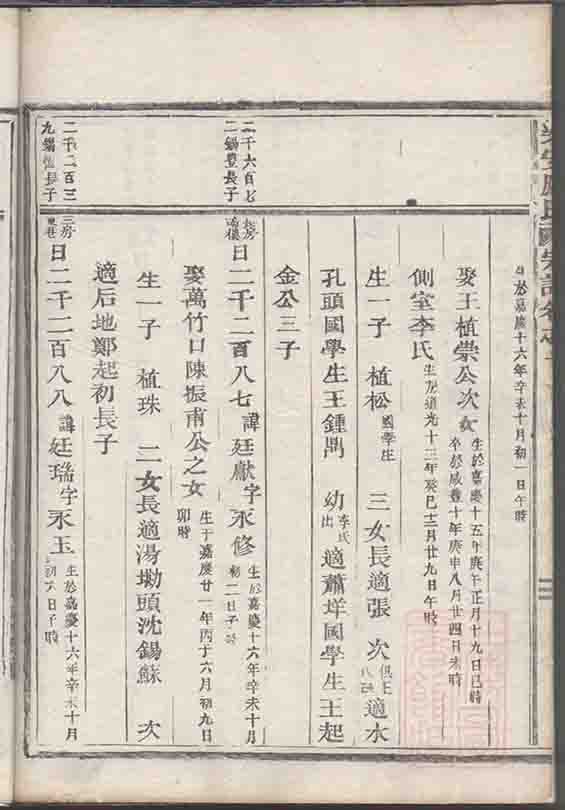 生於嘉慶十六年辛未十月初一日午時
娶王植崇公次女 生於嘉慶十五年庚午正月十九日巳時
卒於咸豐十年庚申八月廿四日未時
側室李氏 生於道光十三年癸巳十二月廿九日午時
生一子 植松 國學生 三女長適張 次 俱王 適水
孔頭國學生王鍾禼 幼 李氏出 適蕭垟國學生王起
金公三子
二千六百七
二錫豐長子
日二千二百八七 諱廷獻字永修 生於嘉慶十六年辛未十月
初二日子時
娶萬竹口陳振甫公之女 生于嘉慶廿一年丙子六月初九日
卯時
生一子 植珠 二女長適湯塆頭沈錫蘇 次
適后地鄭起初長子
二千二百三
九錫 長子
三房
日二千二百八八 諱廷瑞字永玉 生於嘉慶十六年辛未十月
初八日子時